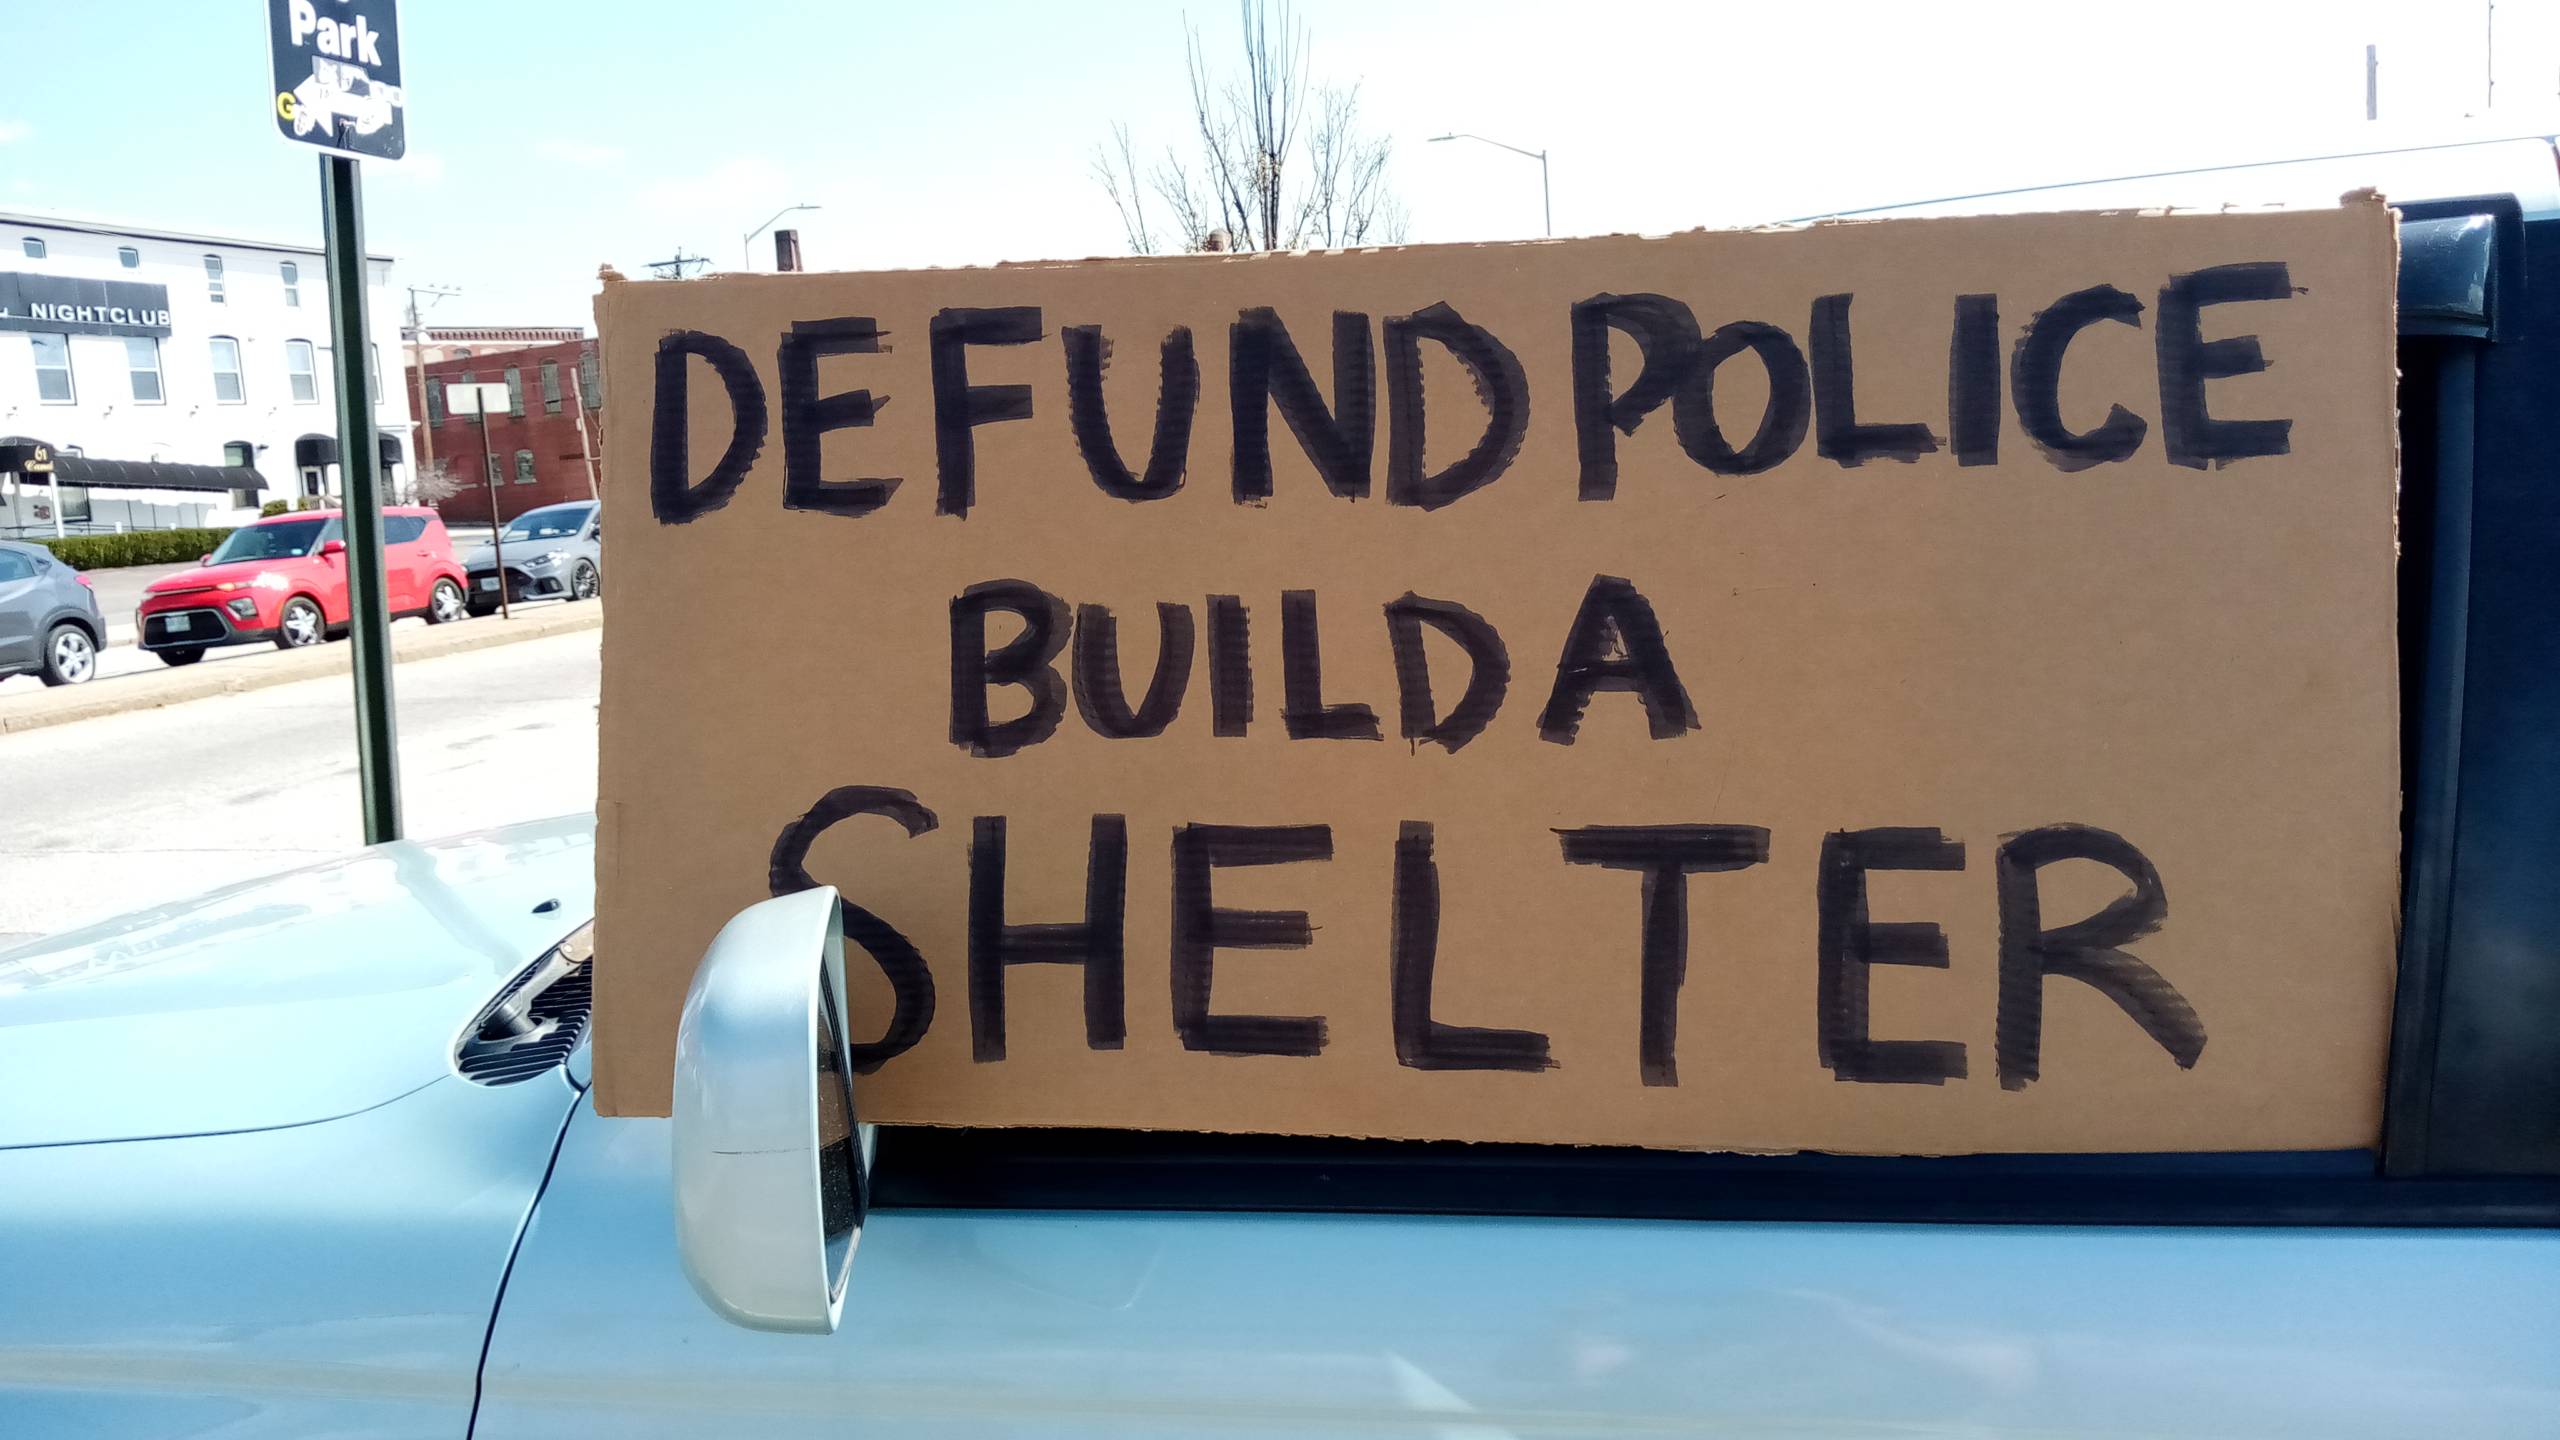 Park
NIGHTCLUB
61
Canal
DEFUND POLICE
BUILD A
SHELTER